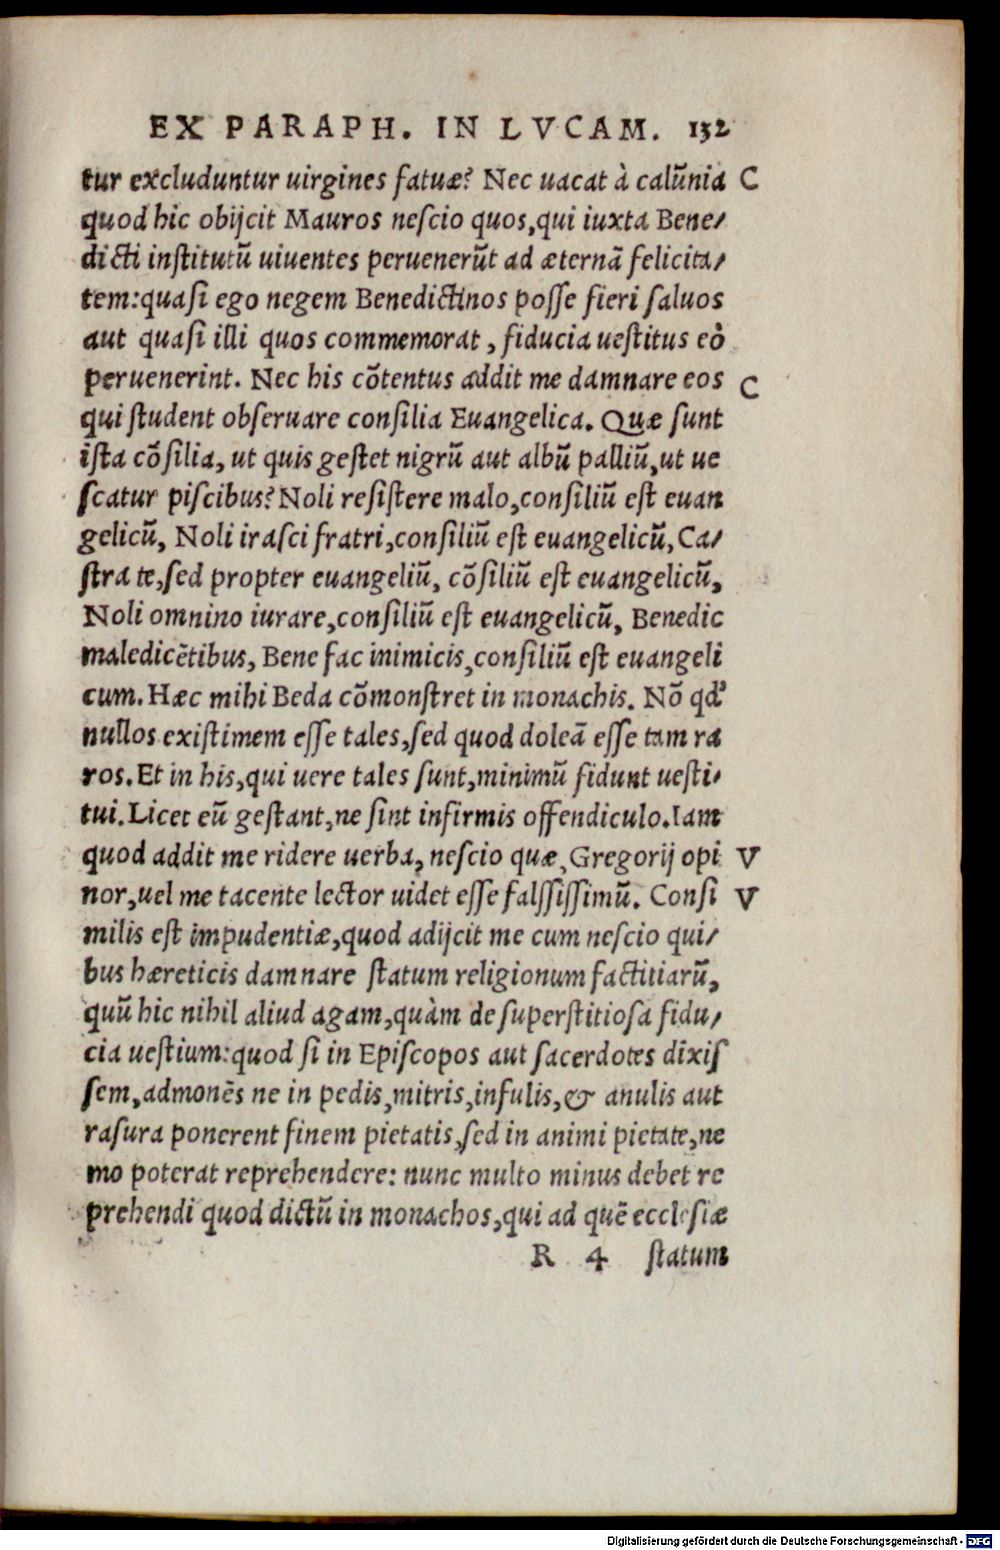 EX PARAPH. IN LVCAM. 132
tur excluduntur uirgines fatuæ? Nec uacat à calũnia C
quod hic obijcit Mauros nescio quos, qui iuxta Bene/
dicti institutũ uiuentes peruenerũt ad æternã felicita/
tem: quasi ego negem Benedictinos posse fieri saluos
aut quasi illi quos commemorat, fiducia uestitus eò
peruenerint. Nec his cõtentus addit me damnare eos C
qui student obseruare consilia Euangelica. Quæ sunt
ista cõsilia, ut quis gestet nigrũ aut albũ palliũ, ut ue
scatur piscibus? Noli resistere malo, consiliũ est euan
gelicũ, Noli irasci fratri, consiliũ est euangelicũ, Ca/
stra te, sed propter euangeliũ, cõsiliũ est euangelicũ,
Noli omnino iurare, consiliũ est euangelicũ, Benedic
maledicẽtibus, Bene fac inimicis, consiliũ est euangeli
cum. Hæc mihi Beda cõmonstret in monachis. Nõ qd'
nullos existimem esse tales, sed quod doleã esse tam ra
ros. Et in his, qui uere tales sunt, minimũ fidunt uesti/
tui. Licet eũ gestant, ne sint infirmis offendiculo. Iam
quod addit me ridere uerba, nescio quæ, Gregorij opi V
nor, uel me tacente lector uidet esse falsissimũ. Consi V
milis est impudentiæ, quod adijcit me cum nescio qui/
bus hæreticis damnare statum religionum factitiarũ,
quũ hic nihil aliud agam, quàm de superstitiosa fidu/
cia uestium: quod si in Episcopos aut sacerdotes dixis
sem, admonẽs ne in pedis, mitris, infulis, & anulis aut
rasura ponerent finem pietatis, sed in animi pietate, ne
mo poterat reprehendere: nunc multo minus debet re
prehendi quod dictũ in monachos, qui ad quẽ ecclesiæ
R 4 statum
Digitalisierung gefördert durch die Deutsche Forschungsgemeinschaft - DFG